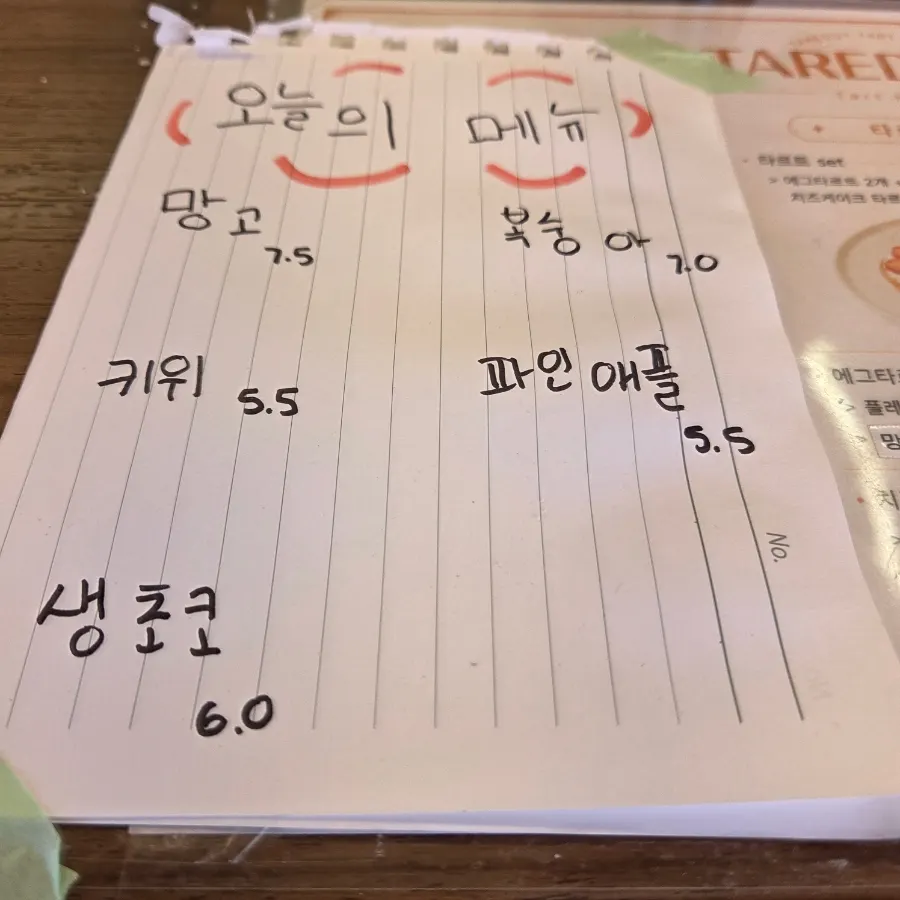 오늘의 메뉴
망고 7.5
복숭아 7.0
키위 5.5
파인애플 5.5
생초코 6.0
No.
TARED
타르트 set
> 에그타르트 2개 +
치즈케이크 타르
에그타르
> 플레
망